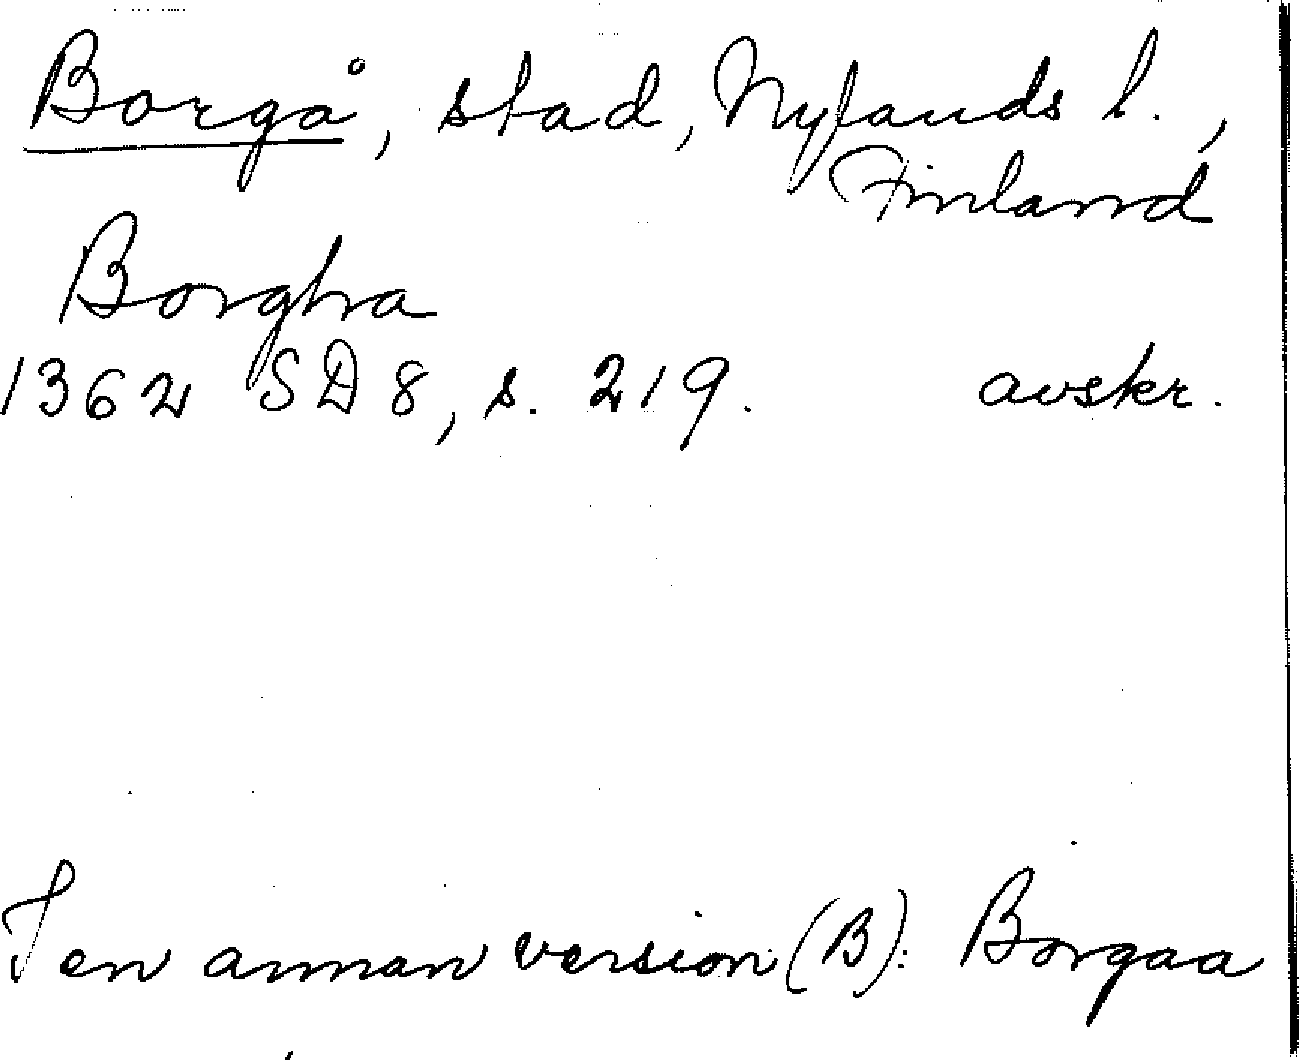 Borgå, stad, Nylands l.,
Finland
Borgha
1362 SD 8, s. 219. avskr.
I en annan version (B): Borgaa